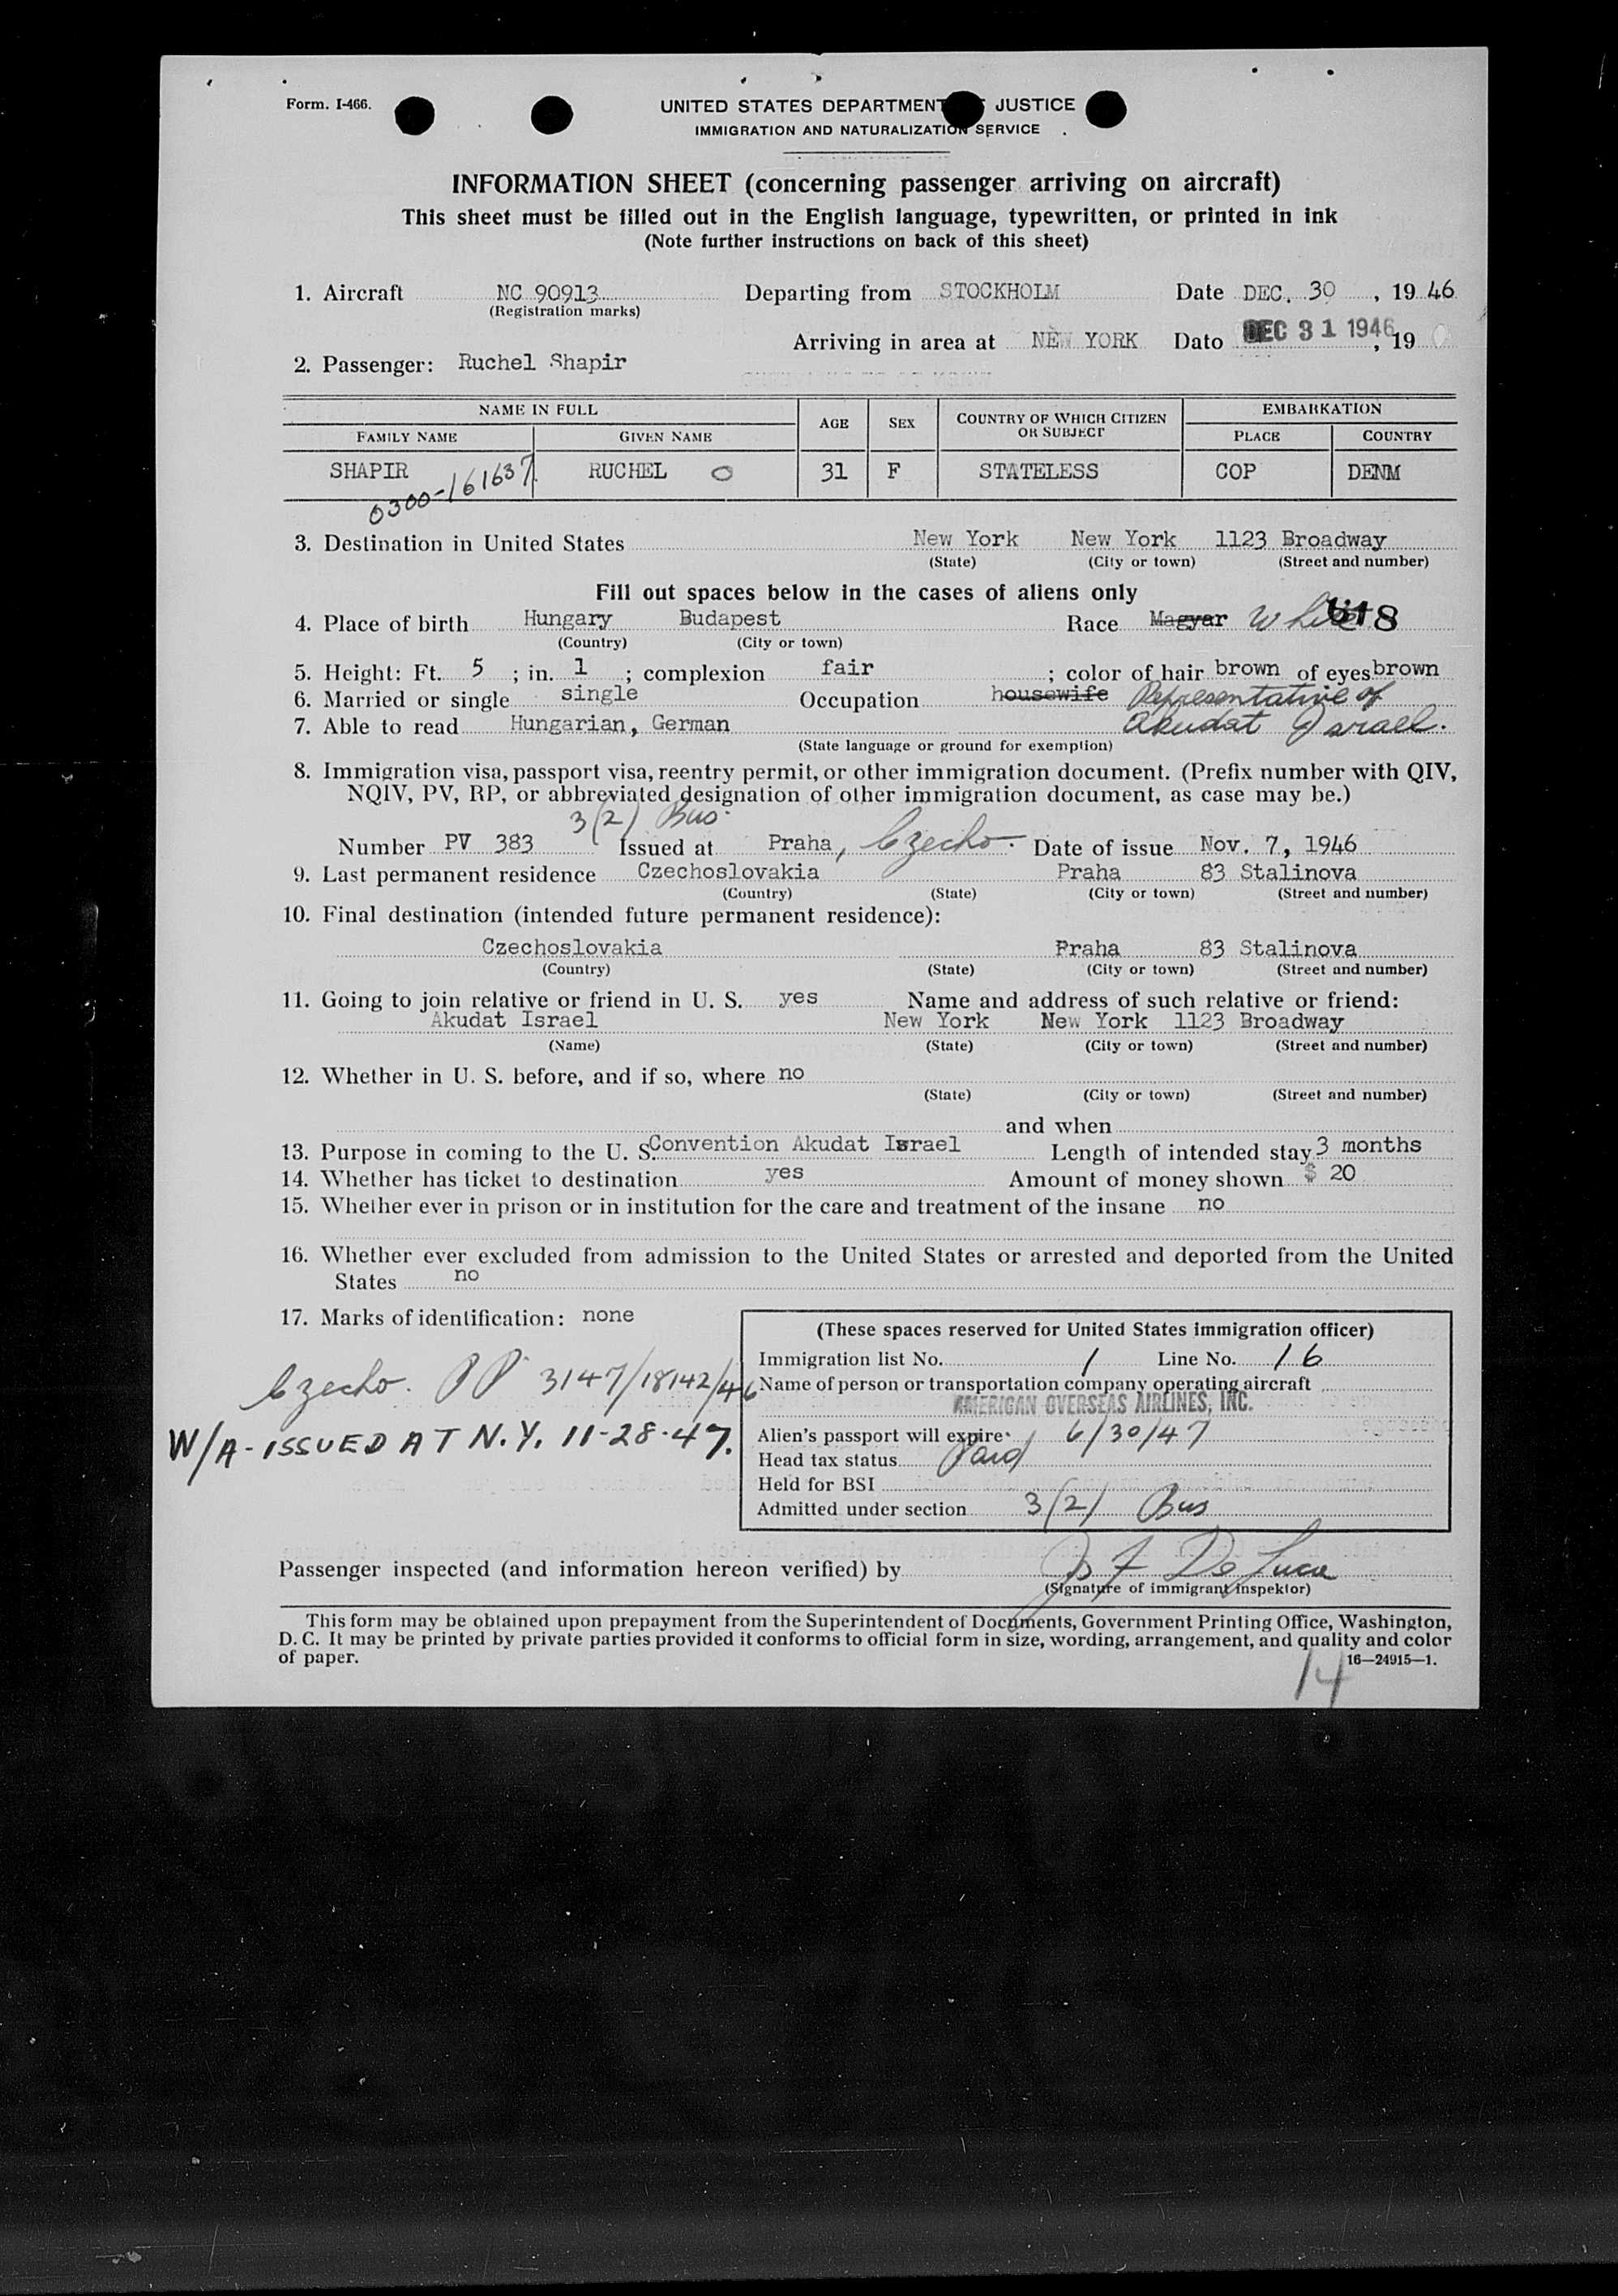 Form. I-466.
UNITED STATES DEPARTMENT JUSTICE
IMMIGRATION AND NATURALIZATION SERVICE
INFORMATION SHEET (concerning passenger arriving on aircraft)
This sheet must be filled out in the English language, typewritten, or printed in ink
(Note further instructions on back of this sheet)
1. Aircraft NC 90913 Departing from STOCKHOLM Date DEC. 30, 19 46
(Registration marks)
Arriving in area at NEW YORK Date DEC 31 1946, 19
2. Passenger: Ruchel Shapir
NAME IN FULL AGE SEX COUNTRY OF WHICH CITIZEN OR SUBJECT EMBARKATION
FAMILY NAME GIVEN NAME PLACE COUNTRY
SHAPIR RUCHEL O 31 F STATELESS COP DENM
0300-161637
3. Destination in United States New York New York 1123 Broadway
(State) (City or town) (Street and number)
Fill out spaces below in the cases of aliens only
4. Place of birth Hungary Budapest Race Magyar White 8
(Country) (City or town)
5. Height: Ft. 5 ; in. 1 ; complexion fair ; color of hair brown of eyes brown
6. Married or single single Occupation housewife Representative of
7. Able to read Hungarian, German Akudat Israel.
(State language or ground for exemption)
8. Immigration visa, passport visa, reentry permit, or other immigration document. (Prefix number with QIV,
NQIV, PV, RP, or abbreviated designation of other immigration document, as case may be.)
3(2) Bus.
Number PV 383 Issued at Praha, Czecho. Date of issue Nov. 7, 1946
9. Last permanent residence Czechoslovakia Praha 83 Stalinova
(Country) (State) (City or town) (Street and number)
10. Final destination (intended future permanent residence):
Czechoslovakia Praha 83 Stalinova
(Country) (State) (City or town) (Street and number)
11. Going to join relative or friend in U. S. yes Name and address of such relative or friend:
Akudat Israel New York New York 1123 Broadway
(Name) (State) (City or town) (Street and number)
12. Whether in U. S. before, and if so, where no
(State) (City or town) (Street and number)
and when
13. Purpose in coming to the U. S. Convention Akudat Israel Length of intended stay 3 months
14. Whether has ticket to destination yes Amount of money shown $ 20
15. Whether ever in prison or in institution for the care and treatment of the insane no
16. Whether ever excluded from admission to the United States or arrested and deported from the United
States no
17. Marks of identification: none
(These spaces reserved for United States immigration officer)
Immigration list No. 1 Line No. 16
Czecho. PP 3147/18142/46
Name of person or transportation company operating aircraft
AMERICAN OVERSEAS AIRLINES, INC.
W/A - ISSUED AT N.Y. 11-28-47.
Alien's passport will expire 6/30/47
Head tax status Paid
Held for BSI
Admitted under section 3(2) Bus
Passenger inspected (and information hereon verified) by
(Signature of immigrant inspektor)
This form may be obtained upon prepayment from the Superintendent of Documents, Government Printing Office, Washington,
D. C. It may be printed by private parties provided it conforms to official form in size, wording, arrangement, and quality and color
of paper. 16—24915—1.
14